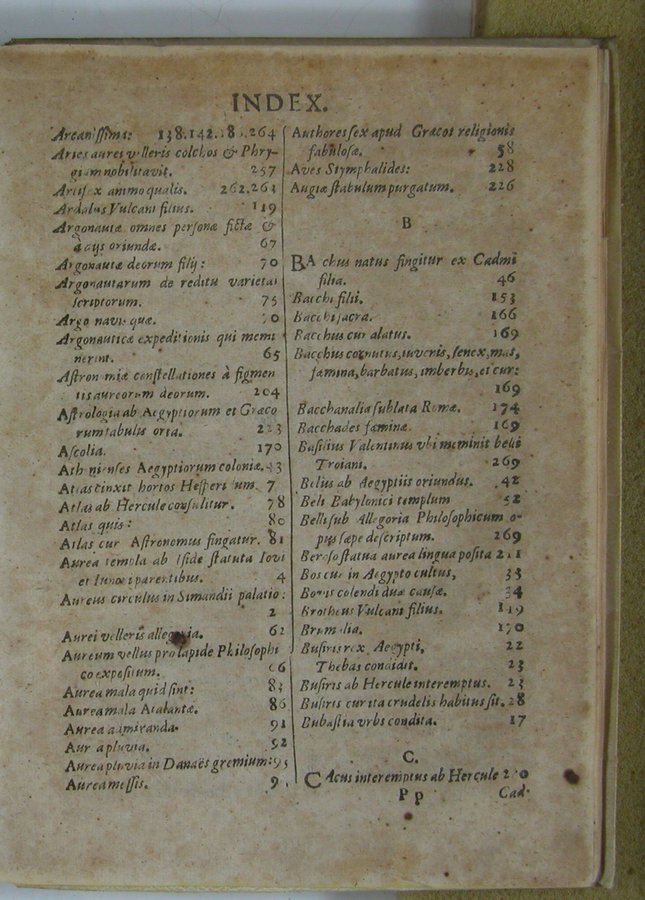 INDEX.
Arcanissima: 138.142. 264
Aries aurei velleris colchos & Phry-
giam nobilitavit. 257
Artifex animo qualis. 262,263
Ardalus Vulcani filius. 119
Argonautæ omnes personæ fictæ &
oriundæ. 67
Argonautæ deorum filij: 70
Argonautarum de reditu varietas
scriptorum. 75
Argo navis quæ. 70
Argonauticæ expeditionis qui memi
nerint. 65
Astronomiæ constellationes à figmen
tis aureorum deorum. 204
Astrologia ab Aegyptiorum et Græco
rum fabulis orta. 223
Ascolia. 170
Athenienses Aegyptiorum coloniæ.
Atlas cinxit hortos Hesperidum. 7
Atlas ab Hercule consulitur. 78
Atlas quis: 80
Atlas cur Astronomus fingatur. 81
Aurea templa ab Iside statuta Iovi
et Iunoni parentibus. 4
Aureus circulus in Simandii palatio:
2
Aurei velleris allegoria. 62
Aureum vellus pro lapide Philosophi
co expositum. 66
Aurea mala quid sint: 83
Aurea mala Atalantæ. 86
Aurea admiranda. 91
Aurea pluvia. 92
Aurea pluvia in Danaës gremium:
Aurea messis.
Authores sex apud Græcos religionis
fabulosæ. 58
Aves Stymphalides: 228
Augiæ stabulum purgatum. 226
B
BAcchus natus fingitur ex Cadmi
filia. 46
Bacchi filii. 153
Bacchi sacra. 166
Bacchus cur alatus. 169
Bacchus cornutus, iuvenis, senex, mas,
fæmina, barbatus, imberbis, et cur:
169
Bacchanalia sublata Romæ. 174
Bacchades fæminæ. 169
Basilius Valentinus vbi meminit belli
Troiani. 269
Belus ab Aegyptiis oriundus. 42
Beli Babylonici templum 52
Belli sub Allegoria Philosophicum o-
pus sæpe descriptum. 269
Beroso statua aurea lingua posita 211
Bos cur in Aegypto cultus, 35
Bovis colendi duæ causæ. 34
Brotheus Vulcani filius. 119
Brumalia. 170
Busiris rex Aegypti, 22
Thebas condidit. 23
Busiris ab Hercule interemptus. 23
Busiris cur ita crudelis habitus sit. 28
Bubastia vrbs condita. 17
C.
CAcus interemptus ab Hercule
P p Cad-